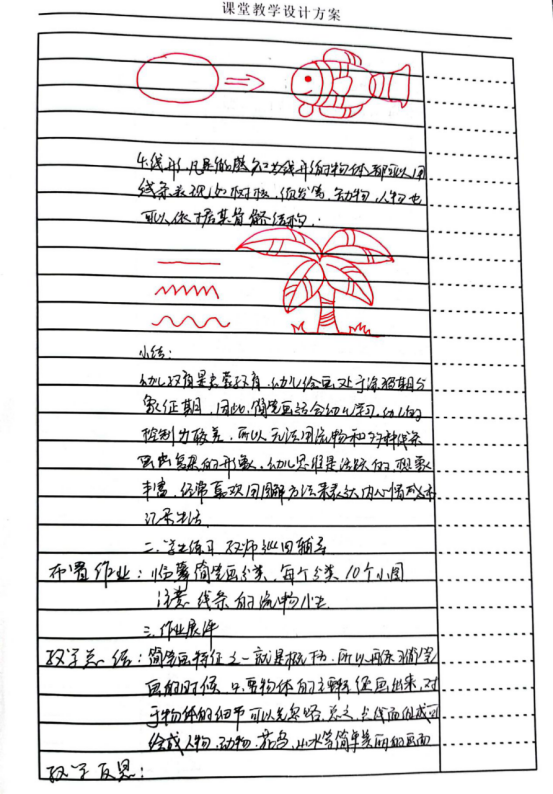 课堂教学设计方案
4.线形,凡是能感知为线形的物体都可以用
线条表现如树枝、佩发饰、动物、人物也
可以依据其骨骼结构.
小结:
幼儿教育是启蒙教育,幼儿绘画处于涂鸦期与
象征期,因此,简笔画适合幼儿学习,幼儿的
控制力较差,所以无法用流畅和多种线条
画出复杂的形象,幼儿思维是活跃的,想象
丰富,经常喜欢用图解方法来表达内心情感和
记录生活.
二、学生练习 教师巡回辅导
布置作业:临摹简笔画分类,每个分类10个小图
注意线条的流畅
三、作业展评
教学总结:简笔画特征之一就是概括,所以再练习简笔
画的时候,只要物体的主要特征画出来,对
于物体的细节可以先忽略,总之,点线面组成可
绘成人物、动物、花鸟、山水等简单美丽的画面
教学反思: